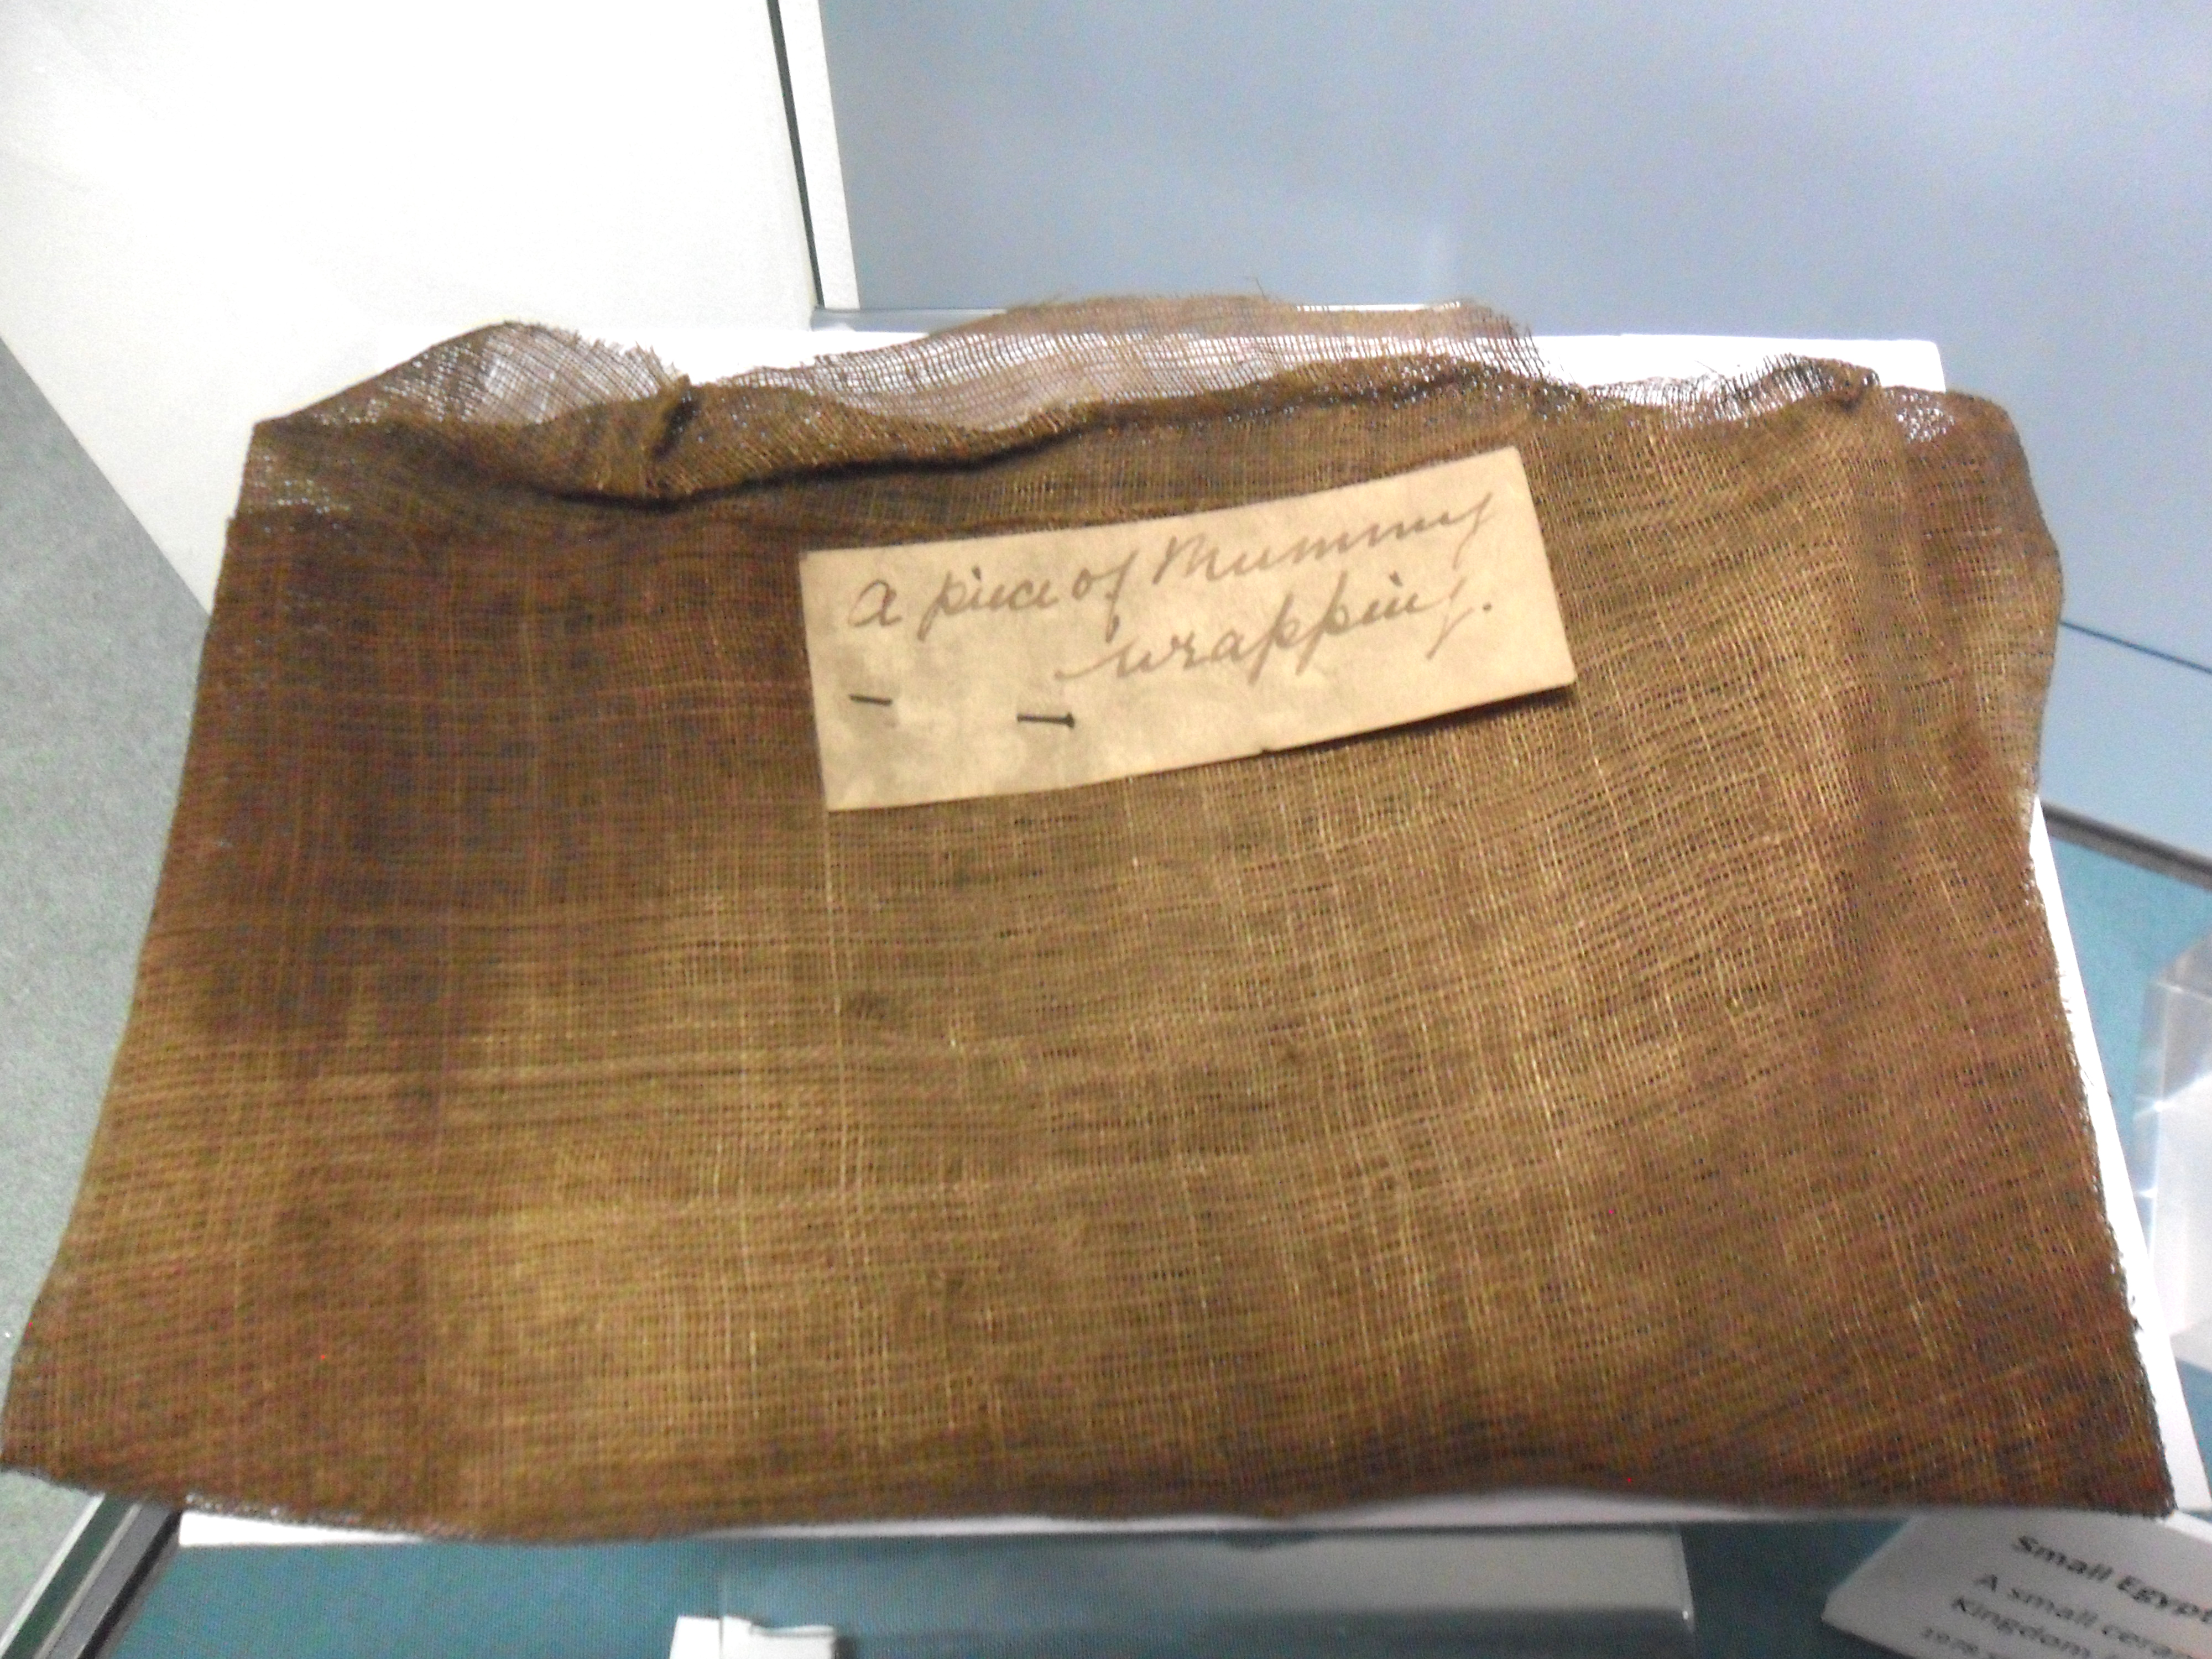 A piece of Mummy
wrapping.
Small Egypt
A small cera
Kingdom